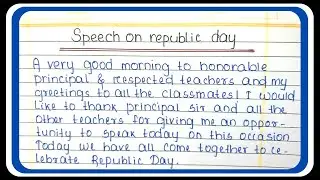 Speech on republic day
A very good morning to honorable
principal & respected teachers and my
greetings to all the classmates! I would
like to thank principal sir and all the
other teachers for giving me an oppor-
tunity to speak today on this occasion
Today we have all come together to ce-
lebrate Republic Day.